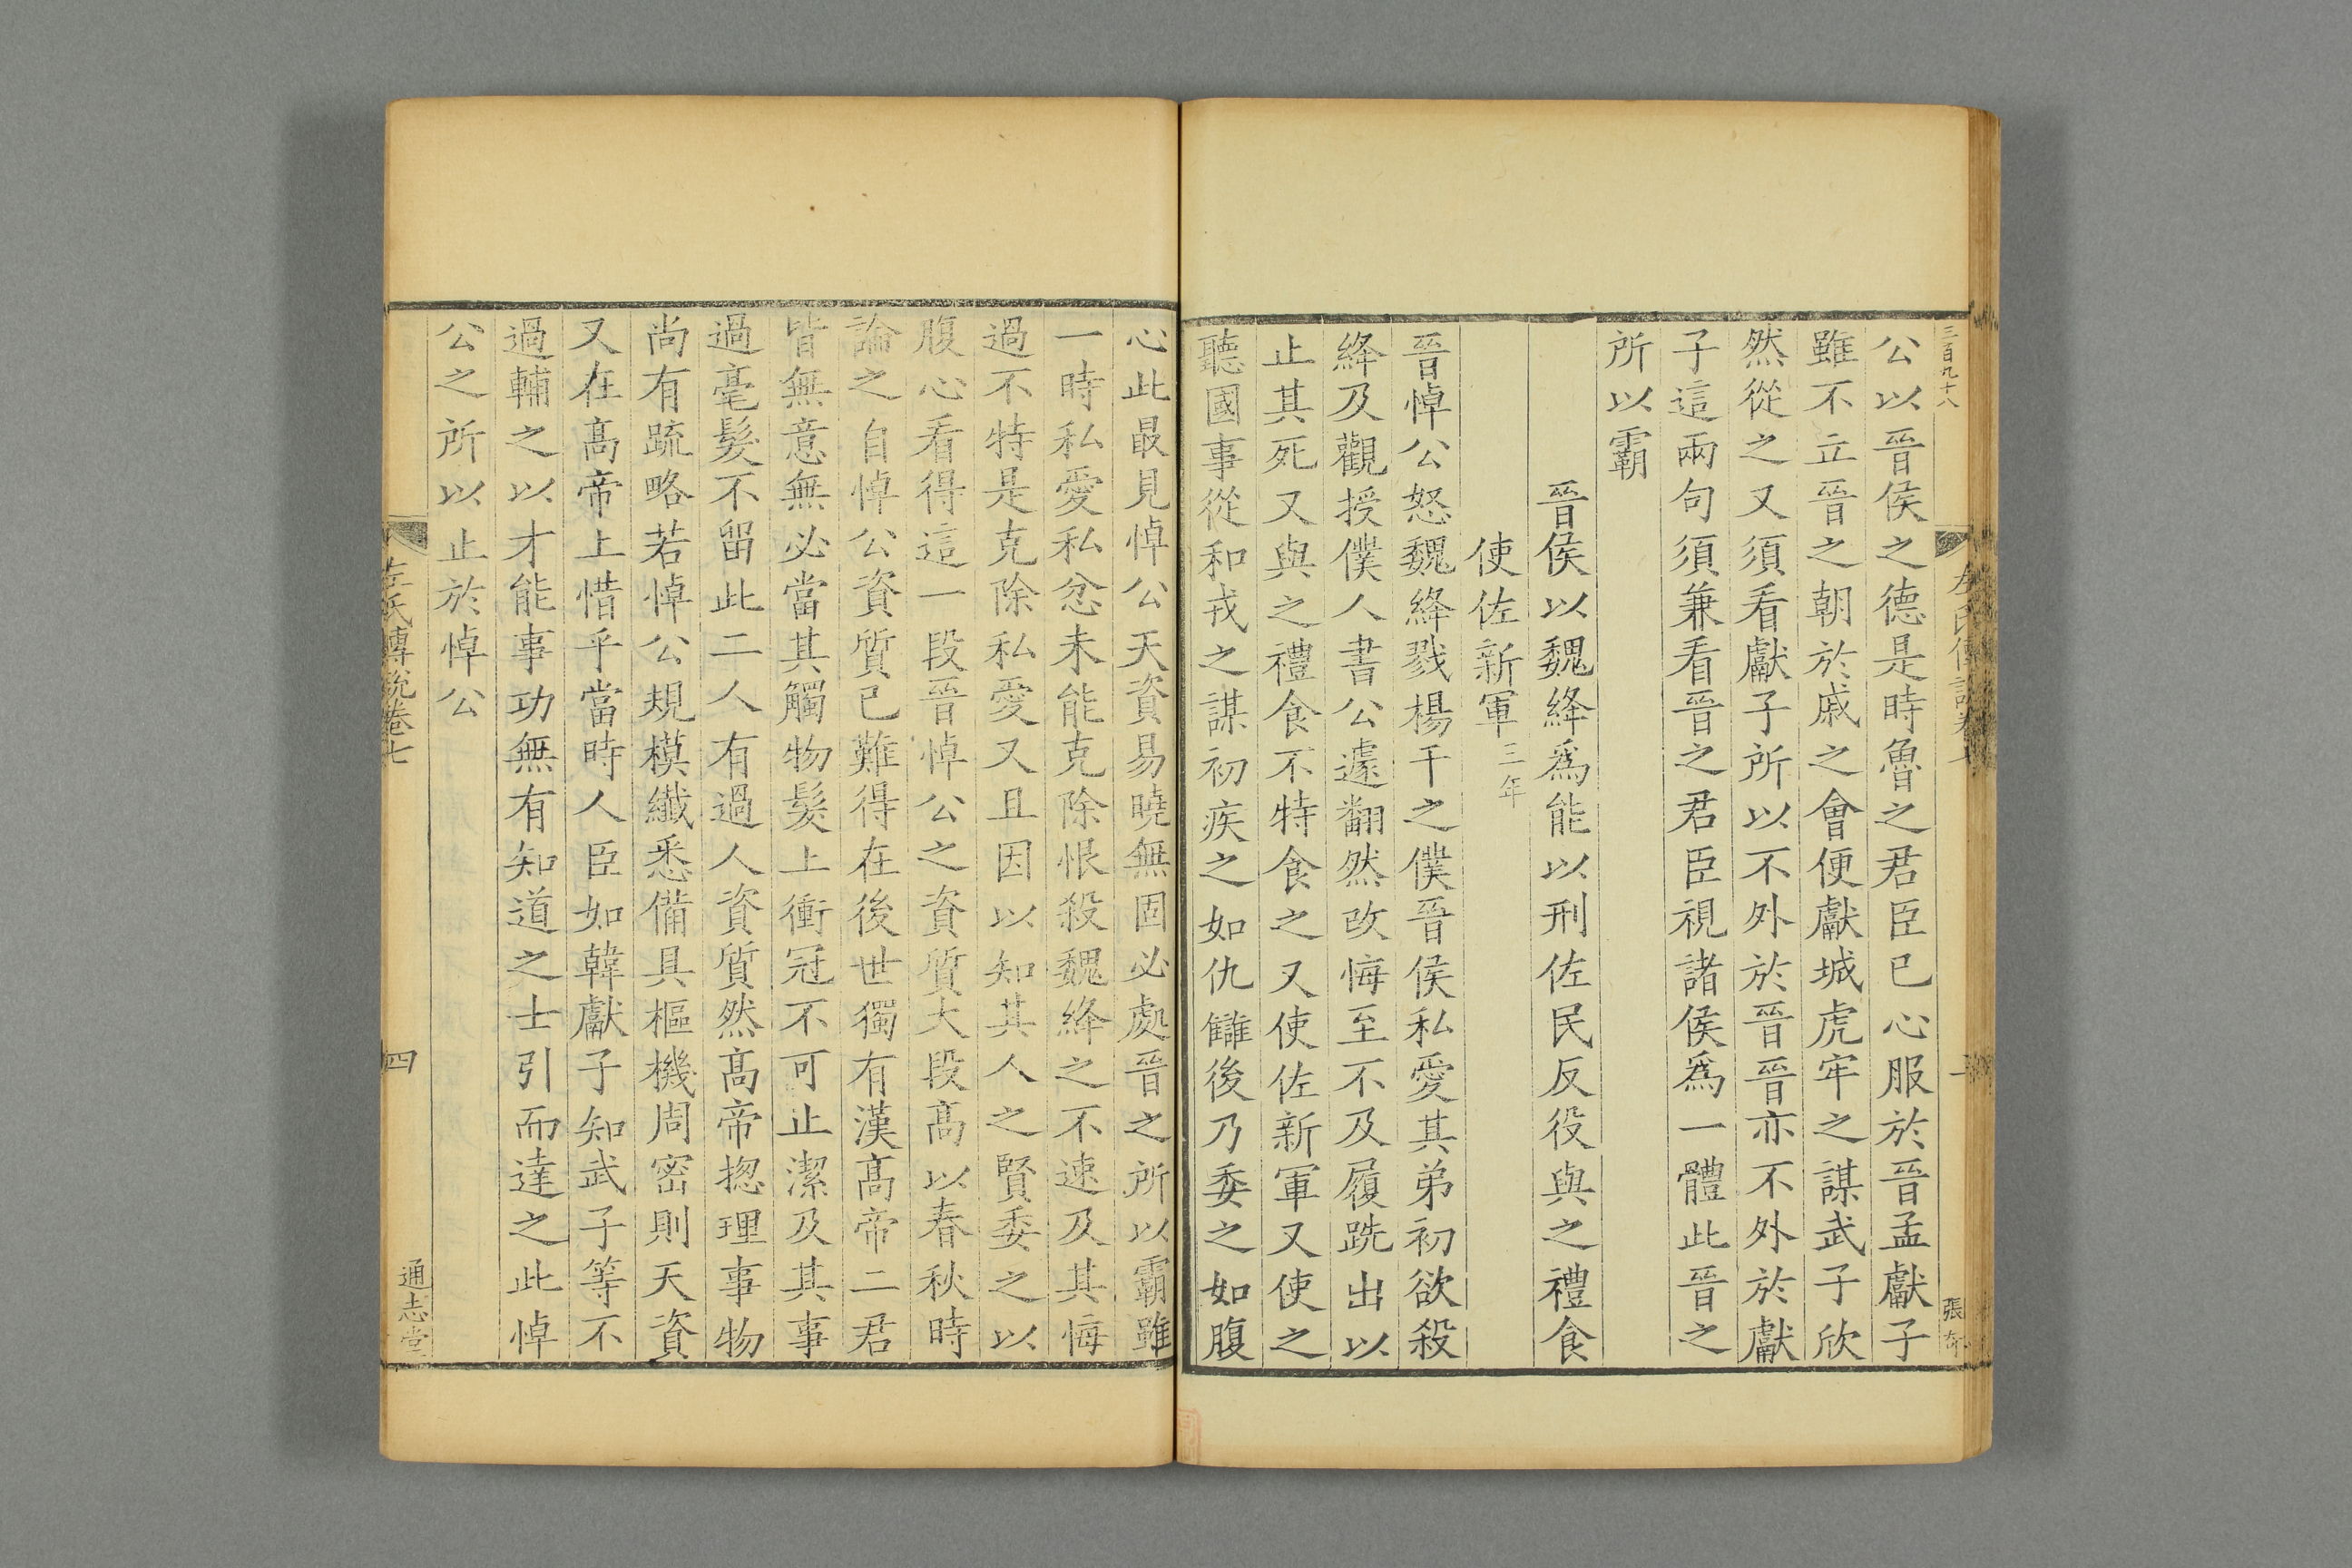 三百九十八
公以晉侯之德是時魯之君臣已心服於晉孟獻子
雖不立晉之朝於戚之會便獻城虎牢之謀武子欣
然從之又須看獻子所以不外於晉晉亦不外於獻
子這兩句須兼看晉之君臣視諸侯爲一體此晉之
所以霸
晉侯以魏絳爲能以刑佐民反役與之禮食
使佐新軍三年
晉悼公怒魏絳戮楊干之僕晉侯私愛其弟初欲殺
絳及觀授僕人書公遽翻然改悔至不及履跣出以
止其死又與之禮食不特食之又使佐新軍又使之
聽國事從和戎之謀初疾之如仇讎後乃委之如腹
心此最見悼公天資易曉無固必處晉之所以霸雖
一時私愛私忿未能克除恨殺魏絳之不速及其悔
過不特是克除私愛又且因以知其人之賢委之以
腹心看得這一段晉悼公之資質大段高以春秋時
論之自悼公資質已難得在後世獨有漢高帝二君
皆無意無必當其觸物髮上衝冠不可止潔及其事
過毫髮不留此二人有過人資質然高帝揔理事物
尚有疏略若悼公規模纖悉備具樞機周密則天資
又在高帝上惜乎當時人臣如韓獻子知武子等不
過輔之以才能事功無有知道之士引而達之此悼
公之所以止於悼公
左氏傳說卷七
四
通志堂